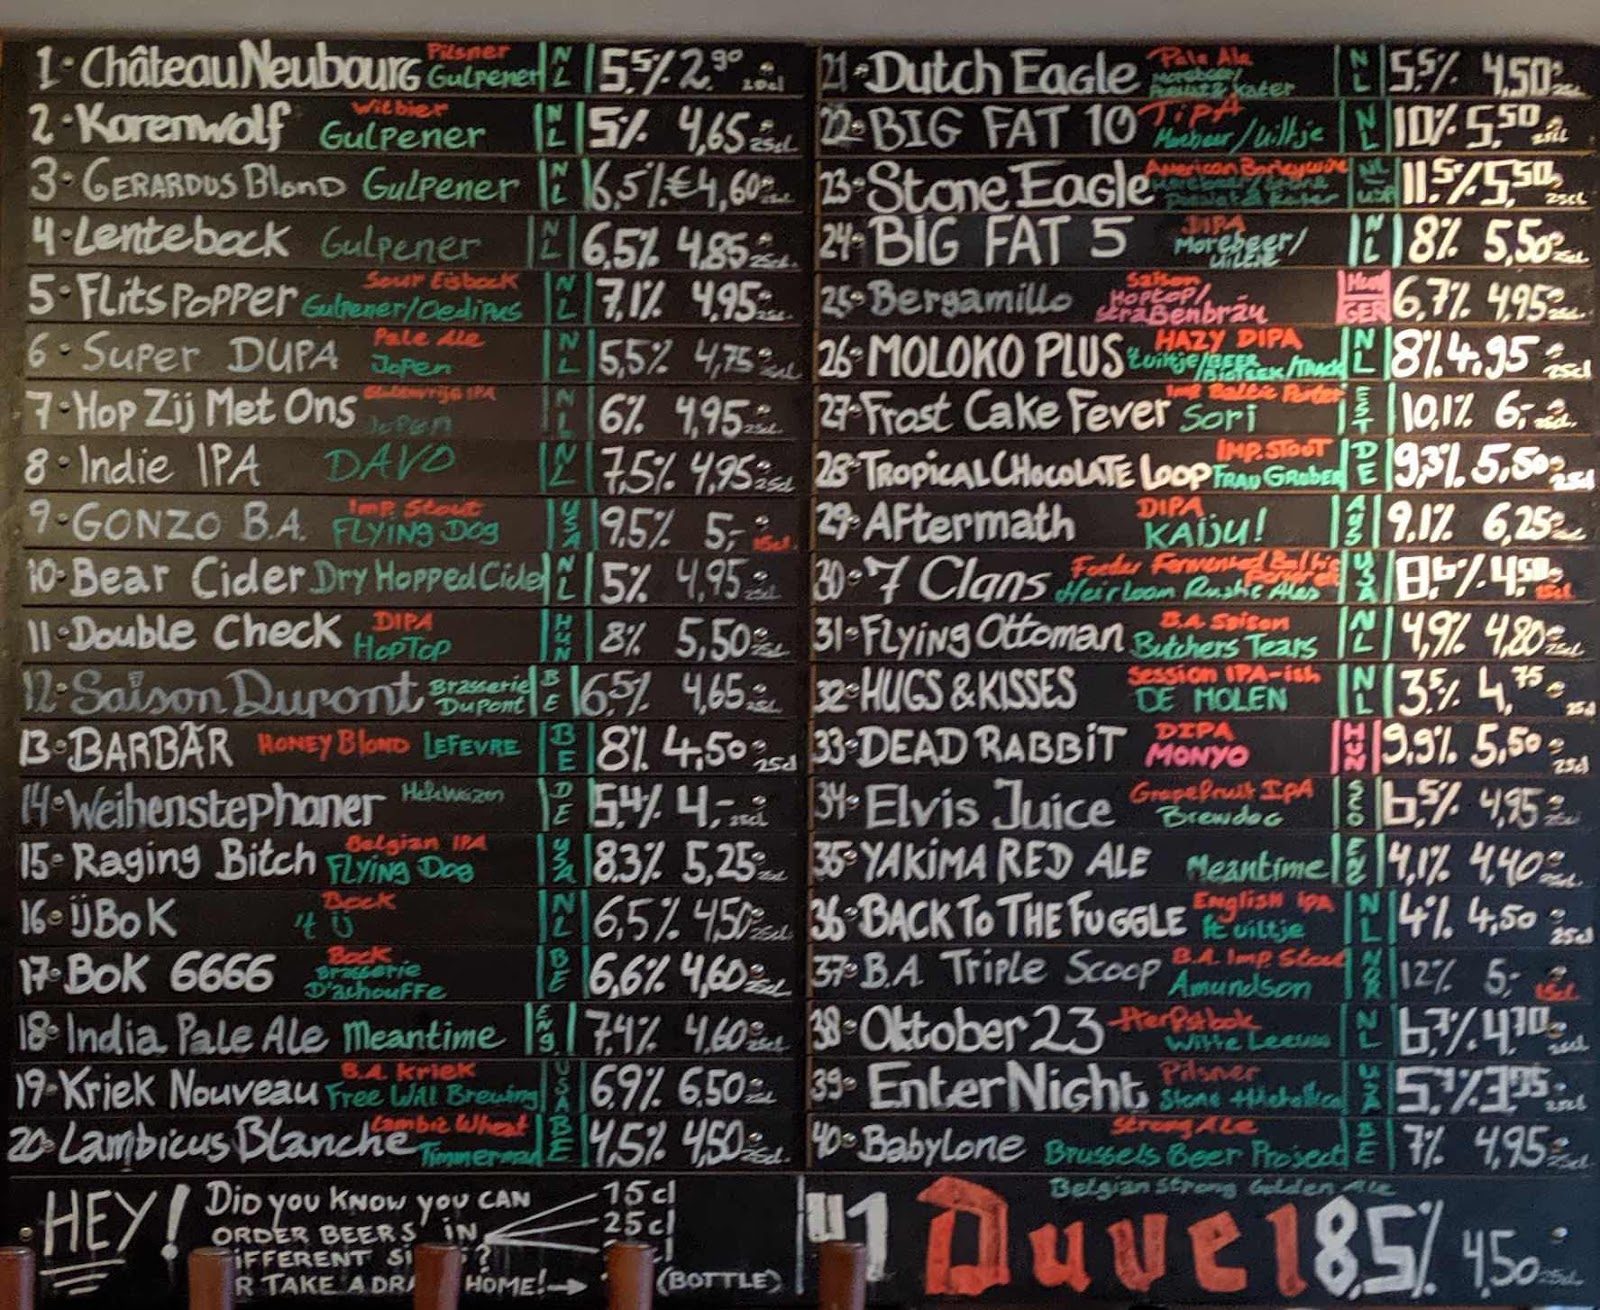 1 Château Neubourg Pilsner Gulpener NL 5.5% 2.90 20cl
2 Korenwolf Witbier Gulpener NL 5% 4,65 25cl
3 GERARDUS Blond Gulpener NL 6,5% €4,60 25cl
4 Lentebock Gulpener NL 6,5% 4,85 25cl
5 FLITSPOPPER Sour Eisbock Gulpener/Oedipus NL 7,1% 4,95 25cl
6 SUPER DUPA Pale Ale Jopen NL 5,5% 4,75 25cl
7 Hop Zij Met Ons Glutenvrije IPA Jopen NL 6% 4,95 25cl
8 Indie IPA DAVO NL 7,5% 4,95 25cl
9 GONZO B.A. Imp. Stout FLYING DOG USA 9,5% 5,- 15cl
10 Bear Cider Dry Hopped Cider NL 5% 4,95 25cl
11 Double Check DIPA HOPTOP HUN 8% 5,50 25cl
12 Saison Dupont Brasserie Dupont BE 6,5% 4,65 25cl
13 BARBÄR HONEY BLOND LEFEVRE BE 8% 4,50 25cl
14 Weihenstephaner HefeWeizen DE 5,4% 4,- 25cl
15 Raging Bitch Belgian IPA FLYING DOG USA 8.3% 5,25 25cl
16 IJBOK Bock 't IJ NL 6,5% 4,50 25cl
17 BOK 6666 Bock Brasserie D'achouffe BE 6,6% 4,60 25cl
18 India Pale Ale Meantime Eng. 7.4% 4.60 25cl
19 Kriek Nouveau B.A. Kriek Free Will Brewing USA 6,9% 6,50 25cl
20 Lambicus Blanche Lambic Wheat Timmerman BE 4,5% 4,50 25cl
HEY! DID YOU KNOW YOU CAN
ORDER BEERS IN
DIFFERENT
TAKE A HOME!→
15 cl
25 cl
(BOTTLE)
21 Dutch Eagle Pale Ale Morebeer/ Kater NL 5.5% 4,50 25cl
22 BIG FAT 10 TIPA Morebeer/Uiltje NL 10% 5,50 25cl
23 Stone Eagle American Barleywine Morebeer/Stone Kater NL USA 11.5% 5,50 25cl
24 BIG FAT 5 DIPA Morebeer/ NL 8% 5,50 25cl
25 Bergamillo Saison HopTop/ Straßenbräu HUN GER 6,7% 4,95 25cl
26 MOLOKO PLUS HAZY DIPA 't Uiltje/BEER BIGTSEK/TRACK NL 8% 4,95 25cl
27 Frost Cake Fever Imp. Baltic Porter SORI EST 10,1% 6,- 25cl
28 TROPICAL CHOCOLATE LOOP IMP. STOUT FRAU GRUBER DE 9,3% 5,50 25cl
29 Aftermath DIPA KAIJU! AUS 9,1% 6,25 25cl
30 7 Clans Foeder Fermented Baltic Porter Heirloom Rustic Ales USA 8,6% 4,50 15cl
31 FLYING Ottoman B.A. Saison Butchers Tears NL 4,9% 4,80 25cl
32 HUGS & KISSES Session IPA-ish DE MOLEN NL 3.5% 4,75 25cl
33 DEAD RABBIT DIPA MONYO HUN 9,9% 5,50 25cl
34 Elvis Juice Grapefruit IPA Brewdog SCO 6,5% 4,95 25cl
35 YAKIMA RED ALE Meantime ENG 4,1% 4,40 25cl
36 BACK TO THE FUGGLE English IPA 't Uiltje NL 4% 4,50 25cl
37 B.A. Triple Scoop B.A. Imp. Stout Amundson NOR 12% 5,- 15cl
38 Oktober 23 Herfstbok Witte Leeuw NL 6.7% 4.70 25cl
39 EnterNight Pilsner Stone + Metallica USA 5.7% 3,75 25cl
40 Babylone Strong Ale Brussels Beer Project BE 7% 4,95 25cl
Belgian Strong Golden Ale
#1 Duvel 8,5% 4,50 25cl